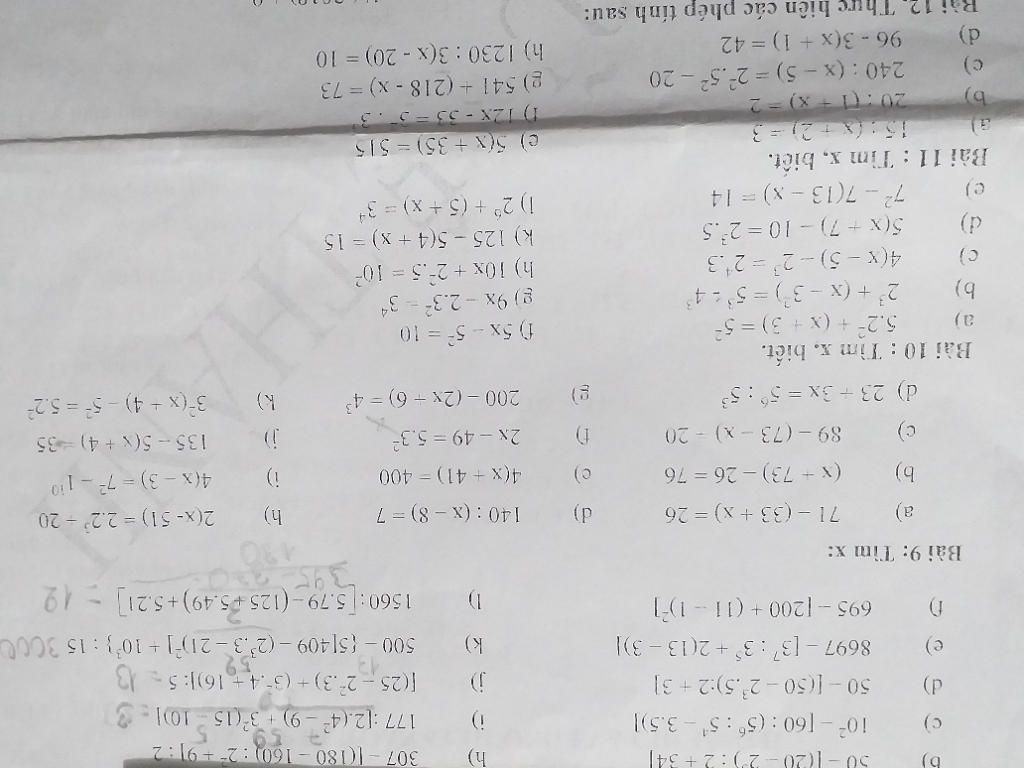 b) 50 – [(20 – 2³) : 2 + 34] h) 307 – [(180 – 160) : 2² + 9] : 2
c) 10² – [60 : (5⁶ : 5⁴ – 3.5)] i) 177 : [2.(4² – 9) + 3²(15 – 10)] = 3
d) 50 – [(50 – 2³.5):2 + 3] j) [(25 – 2².3) + (3².4 + 16)] : 5 = 13
e) 8697 – [3⁷ : 3⁵ + 2(13 – 3)] k) 500 – {5[409 – (2³.3 – 21)²] + 10³} : 15
f) 695 – [200 + (11 – 1)²] l) 1560 : [5.79 – (125 + 5.49) + 5.21] = 12
Bài 9: Tìm x:
a) 71 – (33 + x) = 26 d) 140 : (x – 8) = 7 h) 2(x- 51) = 2.2³ + 20
b) (x + 73) – 26 = 76 e) 4(x + 41) = 400 i) 4(x – 3) = 7² – 1¹⁰
c) 89 – (73 – x) = 20 f) 2x – 49 = 5.3² j) 135 – 5(x + 4) = 35
d) 23 + 3x = 5⁶ : 5³ g) 200 – (2x + 6) = 4³ k) 3²(x + 4) – 5² = 5.2²
Bài 10 : Tìm x, biết.
a) 5.2² + (x + 3) = 5² f) 5x – 5² = 10
b) 2³ + (x – 3²) = 5³ - 4³ g) 9x – 2.3² = 3⁴
c) 4(x – 5) – 2³ = 2⁴.3 h) 10x + 2².5 = 10²
d) 5(x + 7) – 10 = 2³.5 k) 125 – 5(4 + x) = 15
e) 7² – 7(13 – x) = 14 l) 2⁶ + (5 + x) = 3⁴
Bài 11 : Tìm x, biết.
a) 15 : (x + 2) = 3 e) 5(x + 35) = 515
b) 20 : (1 + x) = 2 f) 12x - 33 = 3² . 3³
c) 240 : (x – 5) = 2².5² – 20 g) 541 + (218 - x) = 73
d) 96 - 3(x + 1) = 42 h) 1230 : 3(x - 20) = 10
Bài 12. Thực hiện các phép tính sau: